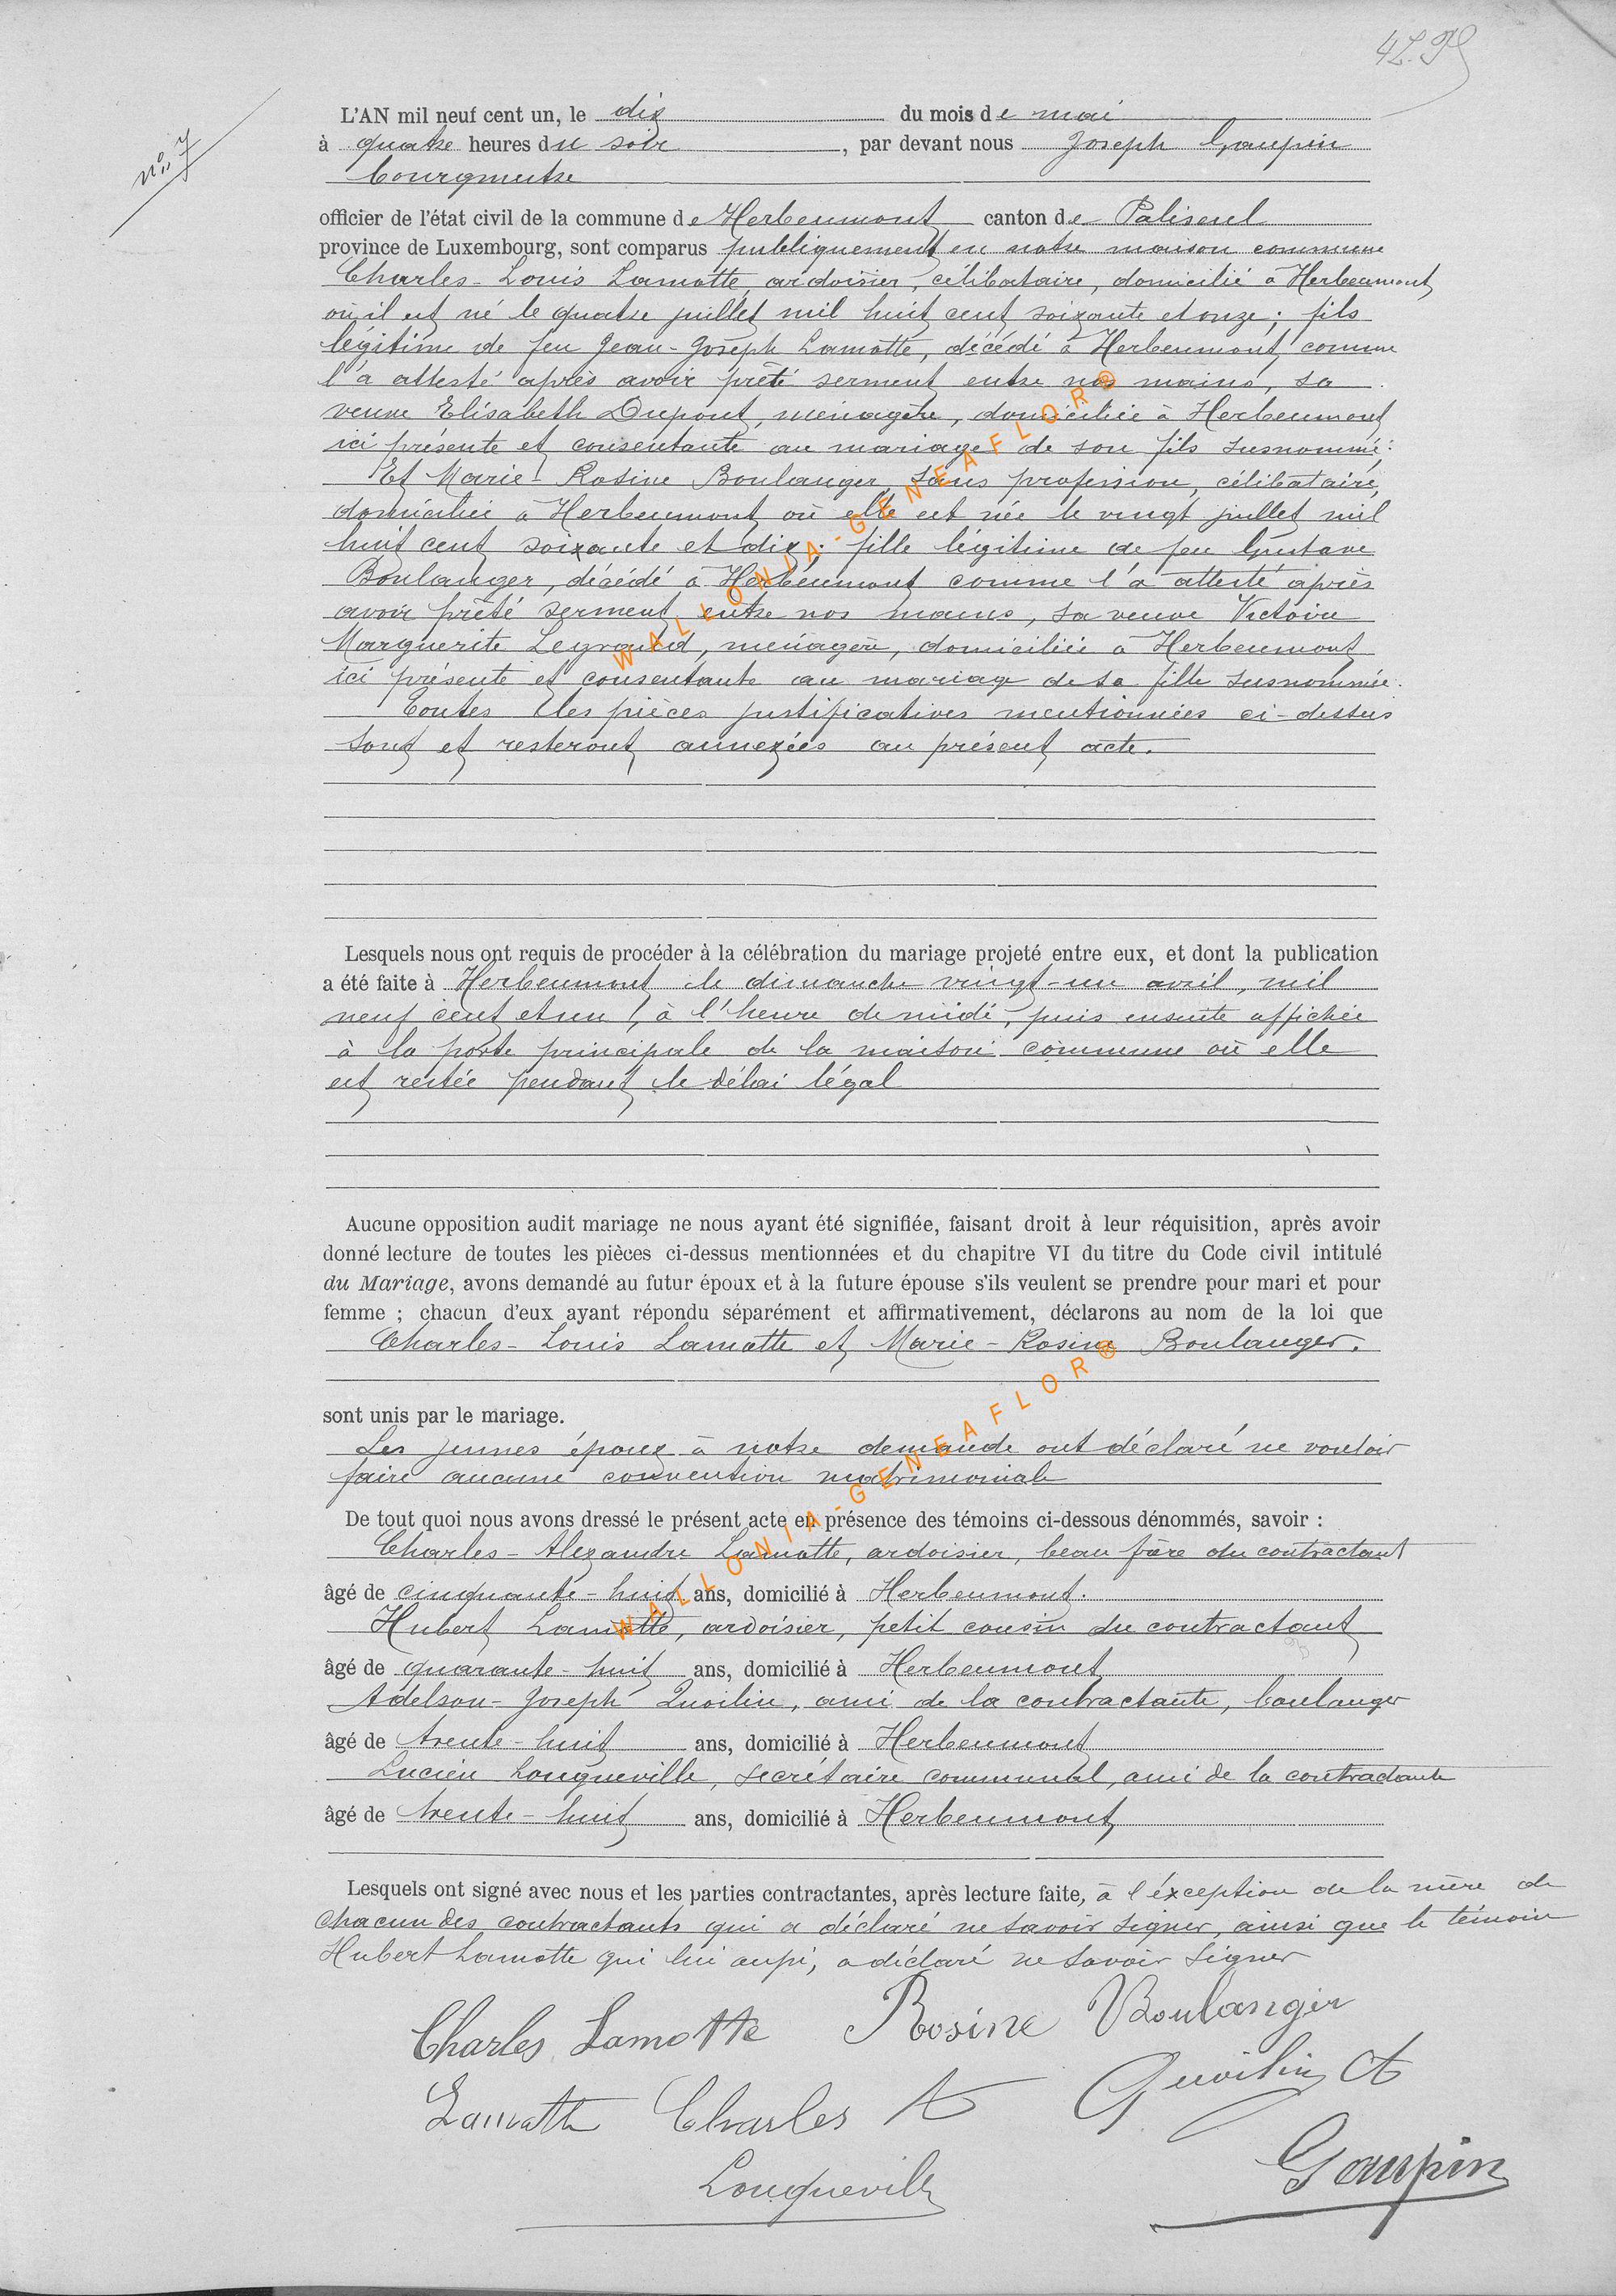 n° 7
L'AN mil neuf cent un, le dix du mois de mai
à quatre heures du soir, par devant nous Joseph Gaupin
bourgmestre
officier de l'état civil de la commune de Herbeumont canton de Paliseul
province de Luxembourg, sont comparus publiquement en notre maison commune
Charles-Louis Lamotte, ardoisier, célibataire, domicilié à Herbeumont
où il est né le quatre juillet mil huit cent soixante et onze; fils
légitime de feu Jean-Joseph Lamotte, décédé à Herbeumont, comme
l'a attesté après avoir prêté serment entre nos mains, sa
veuve Elisabeth Dupont, ménagère, domiciliée à Herbeumont
ici présente et consentante au mariage de son fils susnommé;
Et Marie-Rosine Boulanger, sans profession, célibataire,
domiciliée à Herbeumont où elle est née le vingt juillet mil
huit cent soixante et dix; fille légitime de feu Gustave
Boulanger, décédé à Herbeumont comme l'a attesté après
avoir prêté serment entre nos mains, sa veuve Victoire
Marguerite, ménagère, domiciliée à Herbeumont
ici présente et consentante au mariage de sa fille susnommée.
Toutes les pièces justificatives mentionnées ci-dessus
sont et resteront annexées au présent acte.
Lesquels nous ont requis de procéder à la célébration du mariage projeté entre eux, et dont la publication
a été faite à Herbeumont le dimanche vingt-un avril, mil
neuf cent et un, à l'heure de midi, puis ensuite affichée
à la porte principale de la maison commune où elle
est restée pendant le délai légal
Aucune opposition audit mariage ne nous ayant été signifiée, faisant droit à leur réquisition, après avoir
donné lecture de toutes les pièces ci-dessus mentionnées et du chapitre VI du titre du Code civil intitulé
du Mariage, avons demandé au futur époux et à la future épouse s'ils veulent se prendre pour mari et pour
femme ; chacun d'eux ayant répondu séparément et affirmativement, déclarons au nom de la loi que
Charles-Louis Lamotte et Marie-Rosine Boulanger.
sont unis par le mariage.
Les jeunes époux à notre demande ont déclaré ne vouloir
faire aucune convention matrimoniale
De tout quoi nous avons dressé le présent acte en présence des témoins ci-dessous dénommés, savoir :
Charles-Alexandre Lamotte, ardoisier, beau frère du contractant
âgé de cinquante-huit ans, domicilié à Herbeumont.
Hubert Lamotte, ardoisier, petit cousin du contractant
âgé de quarante-huit ans, domicilié à Herbeumont
Adelson-Joseph Quoilin, ami de la contractante, boulanger
âgé de trente-huit ans, domicilié à Herbeumont
Lucien Longueville, secrétaire communal, ami de la contractante
âgé de trente-huit ans, domicilié à Herbeumont
Lesquels ont signé avec nous et les parties contractantes, après lecture faite, à l'éxception de la mère de
chacun des contractants qui a déclaré ne savoir signer, ainsi que le témoin
Hubert Lamotte qui lui aussi, a déclaré ne savoir signer
Charles Lamotte Rosine Boulanger
Lamotte Charles A Quoilin A
Longueville Gaupin
WALLONIA-GENEAFLOR®
WALLONIA-GENEAFLOR®